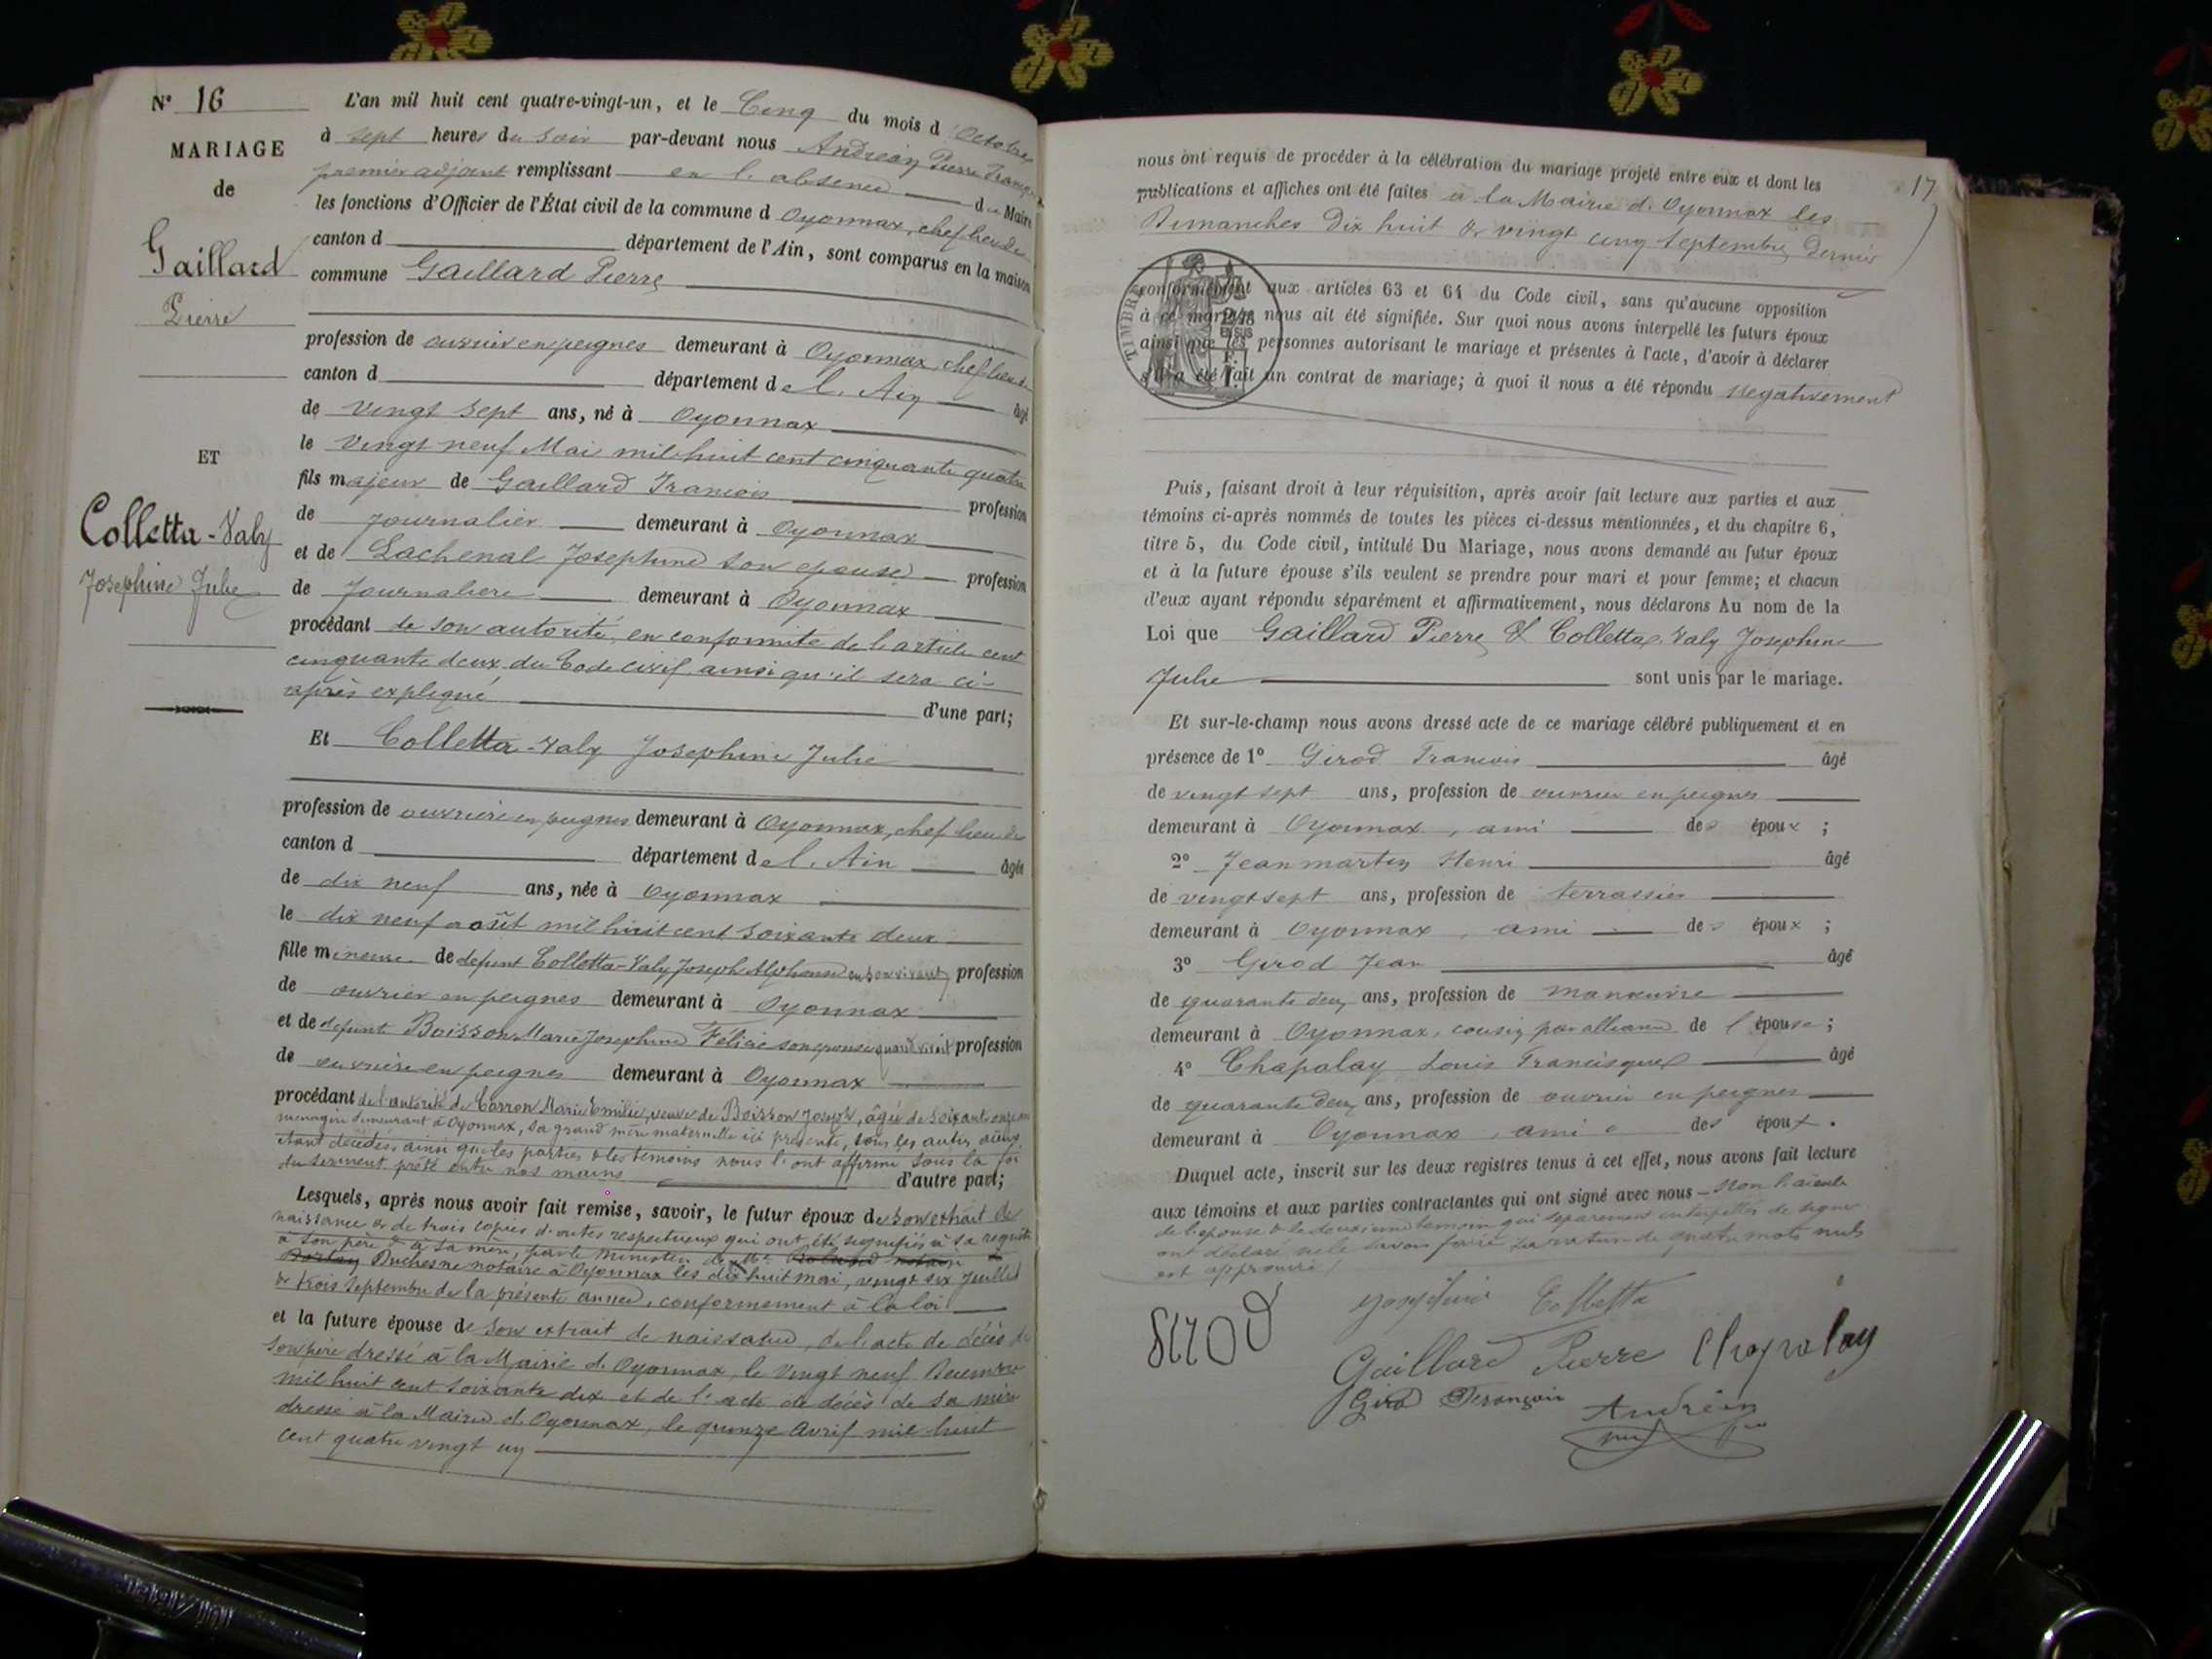 N° 16
MARIAGE
de
Gaillard
Pierre
ET
Colletta-Valy
Josephine Julie
L'an mil huit cent quatre-vingt-un, et le Cinq du mois d'Octobre
à sept heures du soir par-devant nous Andréoz Pierre François
premier adjoint remplissant en l'absence du Maire
les fonctions d'Officier de l'État civil de la commune d Oyonnax, chef lieu de
canton d département de l'Ain, sont comparus en la maison
commune Gaillard Pierre
profession de ouvrier en peignes demeurant à Oyonnax, chef lieu de
canton d département de l'Ain âgé
de vingt sept ans, né à Oyonnax
le vingt neuf Mai mil huit cent cinquante quatre
fils majeur de Gaillard François profession
de journalier demeurant à Oyonnax
et de Lachenal Josephine son epouse profession
de Journaliere demeurant à Oyonnax
procédant de son autorité, en conformité de l'article cent
cinquante deux du Code civil, ainsi qu'il sera ci-
après expliqué d'une part;
Et Colletta-Valy Josephine Julie
profession de ouvrière en peignes demeurant à Oyonnax, chef lieu de
canton d département de l'Ain âgée
de dix neuf ans, née à Oyonnax
le dix neuf août mil huit cent soixante deux
fille mineure de defunt Colletta-Valy Joseph Alphonse en son vivant profession
de ouvrier en peignes demeurant à Oyonnax
et de defunte Boisson Marie Josephine Félicie son epouse quand vivait profession
de ouvrière en peignes demeurant à Oyonnax
procédant de l'autorité de Carron Marie Emilie, veuve de Boisson Joseph, âgée de soixante onze ans
menagère demeurant à Oyonnax, sa grand mère maternelle ici présente, tous les autres aïeux
étant décédés, ainsi que les parties & les temoins nous l'ont affirmé sous la foi
du serment prêté entre nos mains d'autre part;
Lesquels, après nous avoir fait remise, savoir, le futur époux de son extrait de
naissance & de trois copies d'actes respectueux qui ont été signifiés à sa requête
à son père & à sa mère, par le ministère de Me
Duchesne notaire à Oyonnax les dix huit mai, vingt six Juillet
& trois Septembre de la présente année, conformement à la loi
et la future épouse de son extrait de naissance, de l'acte de décès de
son père dressé à la Mairie d'Oyonnax, le vingt neuf Decembre
mil huit cent soixante dix et de l'acte de décès de sa mère
dressé à la Mairie d'Oyonnax, le quinze Avril mil huit
cent quatre vingt un
17
nous ont requis de procéder à la célébration du mariage projeté entre eux et dont les
publications et affiches ont été faites à la Mairie d'Oyonnax les
Dimanches dix huit & vingt cinq Septembre dernier
TIMBRE
conformément aux articles 63 et 64 du Code civil, sans qu'aucune opposition
à ce mariage nous ait été signifiée. Sur quoi nous avons interpellé les futurs époux
ainsi que les personnes autorisant le mariage et présentes à l'acte, d'avoir à déclarer
s'il a été fait un contrat de mariage; à quoi il nous a été répondu negativement
Puis, faisant droit à leur réquisition, après avoir fait lecture aux parties et aux
témoins ci-après nommés de toutes les pièces ci-dessus mentionnées, et du chapitre 6,
titre 5, du Code civil, intitulé Du Mariage, nous avons demandé au futur époux
et à la future épouse s'ils veulent se prendre pour mari et pour femme; et chacun
d'eux ayant répondu séparément et affirmativement, nous déclarons Au nom de la
Loi que Gaillard Pierre & Colletta-Valy Josephine
Julie sont unis par le mariage.
Et sur-le-champ nous avons dressé acte de ce mariage célébré publiquement et en
présence de 1° Girod François âgé
de vingt sept ans, profession de ouvrier en peignes
demeurant à Oyonnax, ami des époux;
2° Jeanmartin Henri âgé
de vingt sept ans, profession de terrassier
demeurant à Oyonnax, ami des époux;
3° Girod Jean âgé
de quarante deux ans, profession de manœuvre
demeurant à Oyonnax, cousin par alliance de l'épouse;
4° Chapalay Louis Francisque âgé
de quarante deux ans, profession de ouvrier en peignes
demeurant à Oyonnax, ami des époux.
Duquel acte, inscrit sur les deux registres tenus à cet effet, nous avons fait lecture
aux témoins et aux parties contractantes qui ont signé avec nous – Non l'aieule
de l'epouse & le deuxieme temoin qui separement interpellés de signer
ont déclaré ne le savoir faire. La rature de quatre mots nuls
est approuvée
Girod Josephine Colletta
Gaillard Pierre Chapalay
Girod François